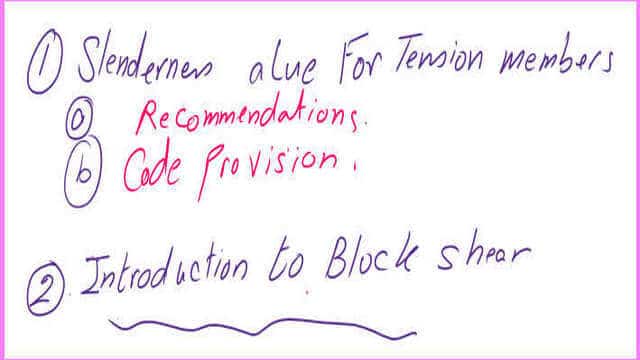 ① Slenderness alue For Tension members
ⓐ Recommendations.
ⓑ Code Provision.
② Introduction to Block shear